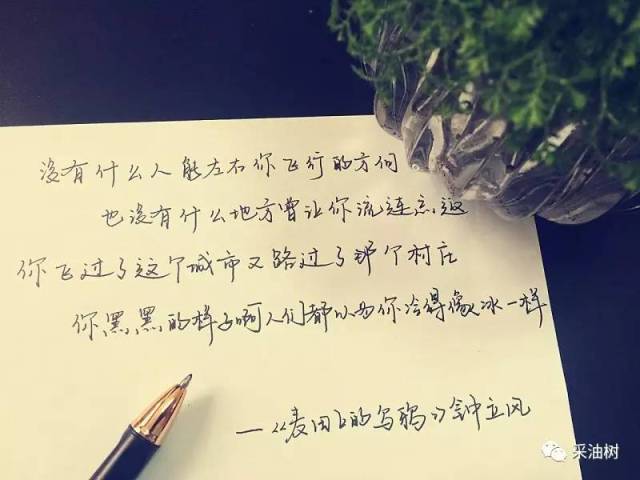 没有什么人能左右你飞行的方向
也没有什么地方曾让你流连忘返
你飞过了这个城市又路过了那个村庄
你黑黑的样子啊人们都以为你冷得像冰一样
—《麦田上的乌鸦》钟立风
采油树